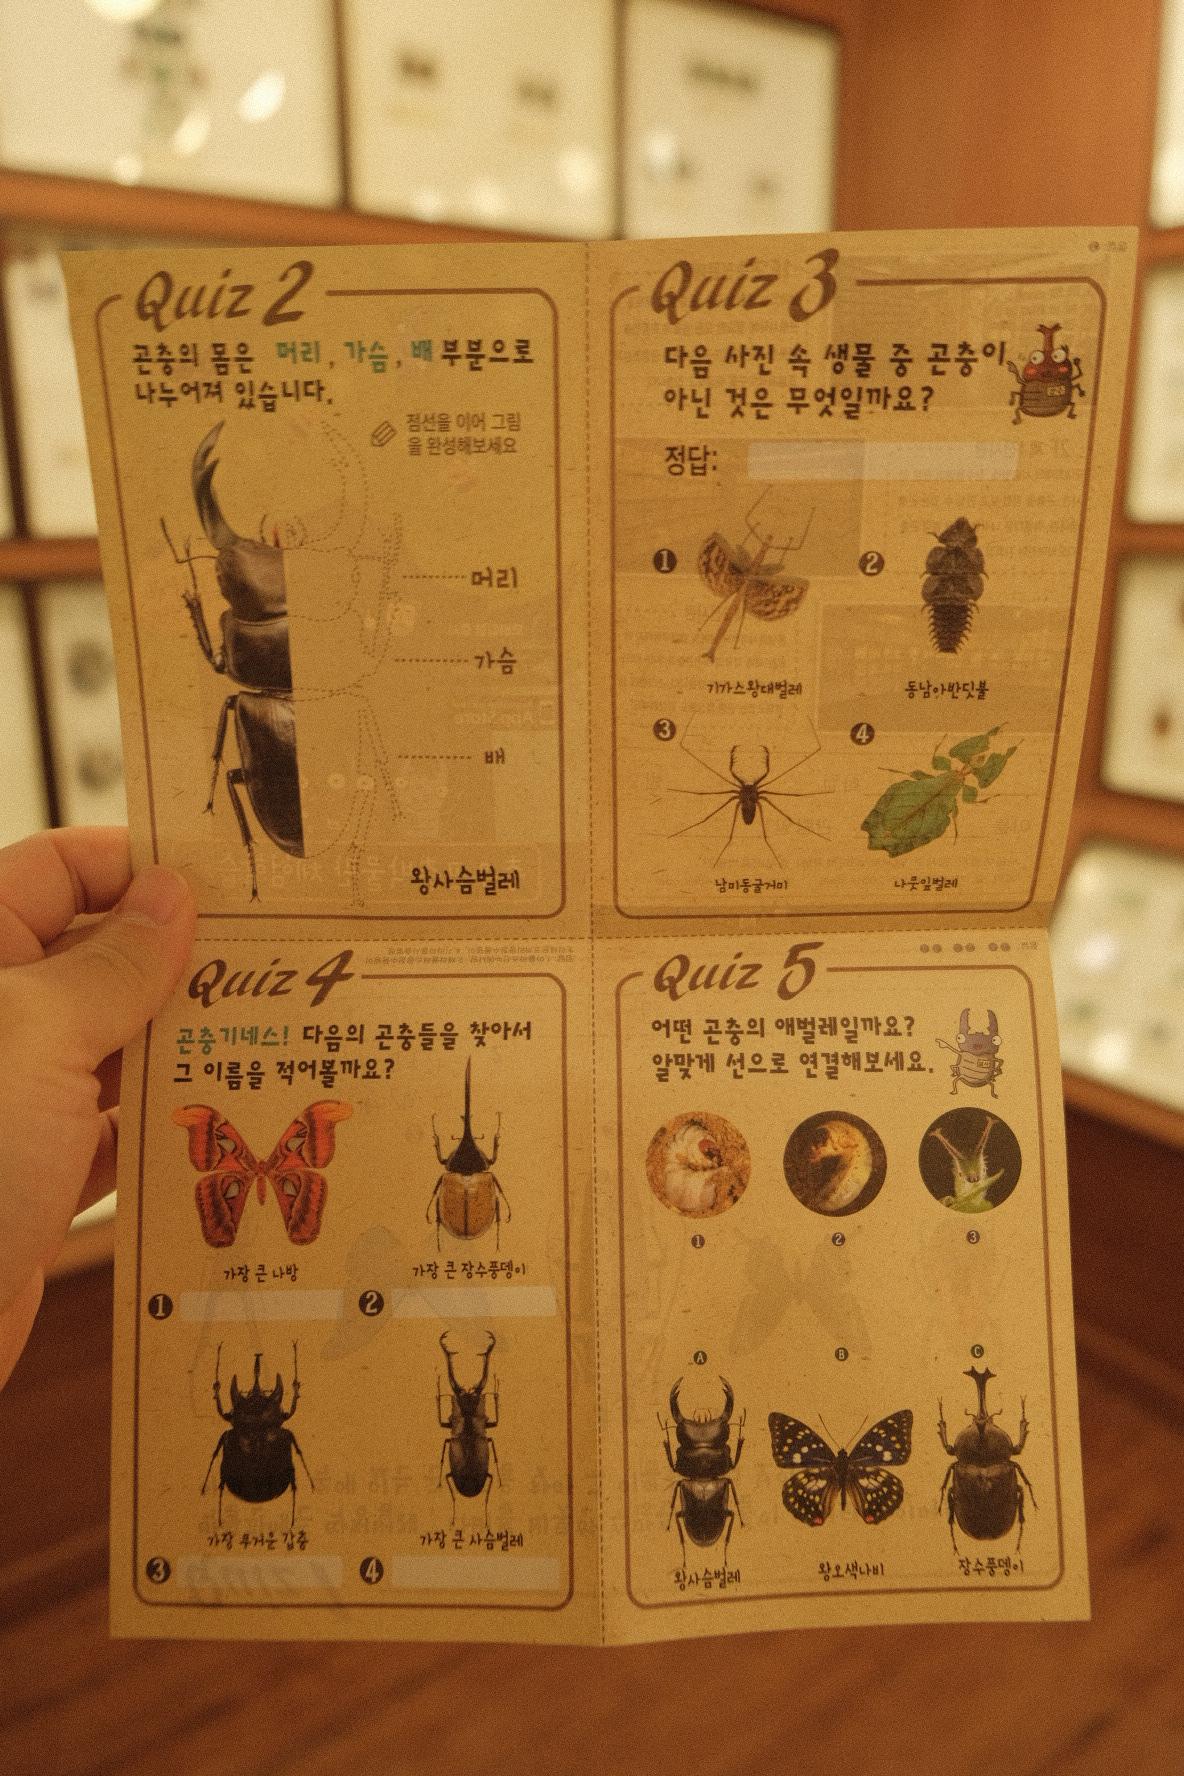 Quiz 2
곤충의 몸은 머리, 가슴, 배 부분으로
나누어져 있습니다.
점선을 이어 그림
을 완성해보세요
머리
가슴
배
왕사슴벌레
Quiz 3
다음 사진 속 생물 중 곤충이
아닌 것은 무엇일까요?
정답:
1
2
기가스왕대벌레
동남아반딧불
3
4
남미동굴거미
나뭇잎벌레
Quiz 4
곤충기네스! 다음의 곤충들을 찾아서
그 이름을 적어볼까요?
가장 큰 나방
가장 큰 장수풍뎅이
1
2
가장 무거운 갑충
가장 큰 사슴벌레
3
4
Quiz 5
어떤 곤충의 애벌레일까요?
알맞게 선으로 연결해보세요.
1
2
3
A
B
C
왕사슴벌레
왕오색나비
장수풍뎅이